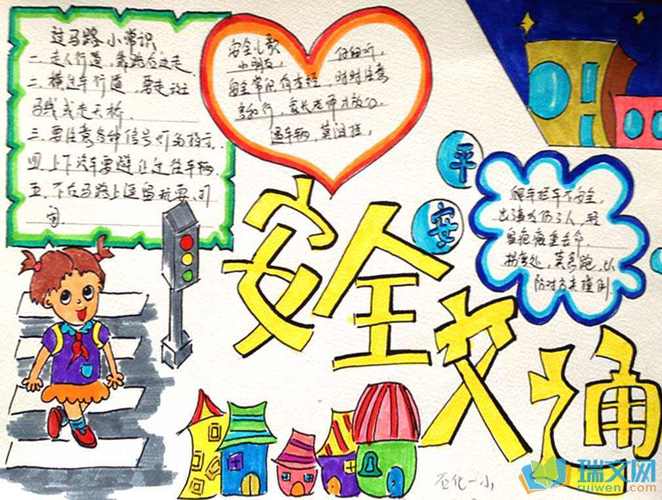 过马路小常识
一、走人行道，靠路右边走。
二、横过车行道，要走斑
马线或走天桥。
三、要注意各种信号灯的指示
四、上下汽车要避让过往车辆。
五、不在马路上逗留玩耍、打
闹。
安全儿歌
小朋友， 仔细听，
安全常识 时时注意
家长老师才放心。
遇车辆，莫
平
安
爬车拦车不安全，
出
拐弯处，莫急跑，以
防对方来撞倒。
安全交通
石化一小
瑞文网
ruiwen.com